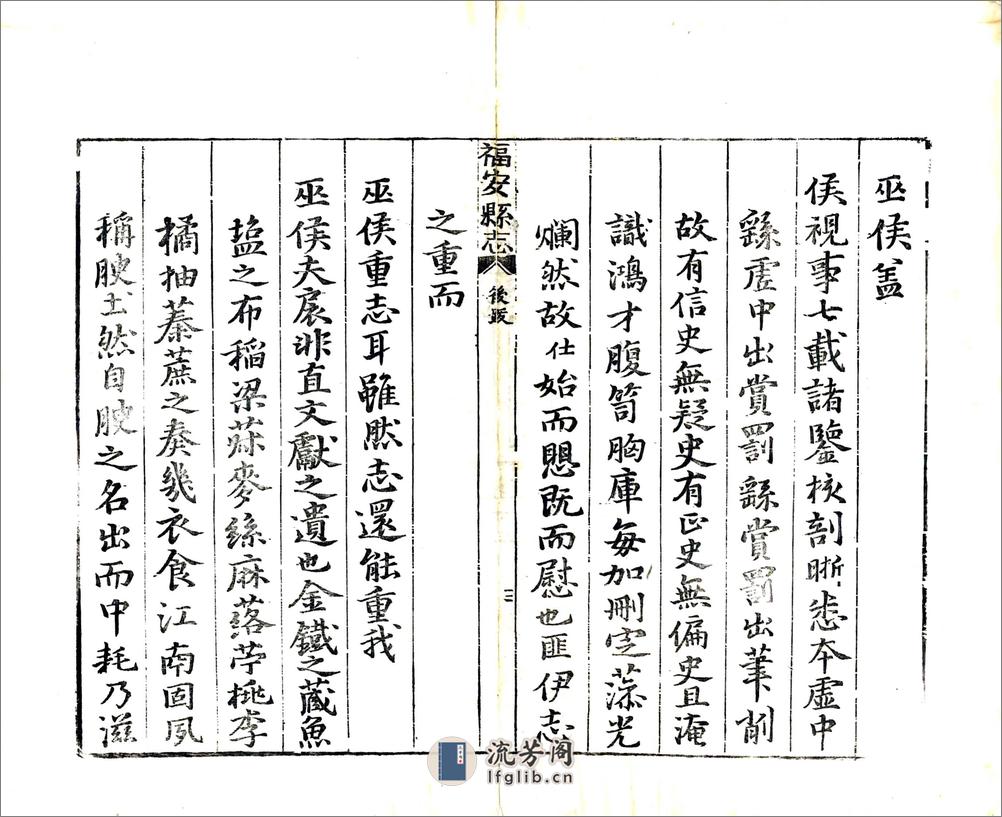 巫侯盖
侯視事七載諸鑒核剖晣悉本虛中
繇虛中出賞罰繇賞罰出筆削
故有信史無疑史有正史無偏史且淹
識鴻才腹笥胸庫每加刪定藻光
爛然故仕始而愳既而慰也匪伊志
福安縣志
後跋
三
之重而
巫侯重志耳雖然志還能重我
巫侯夫扆非直文獻之遺也金鐵之藏魚
塩之布稻梁菽麥絲麻落苧桃李
橘抽蓁蔗之奏幾衣食江南固夙
稱腴土然自腴之名出而中耗乃滋
流芳阁
lfglib.cn